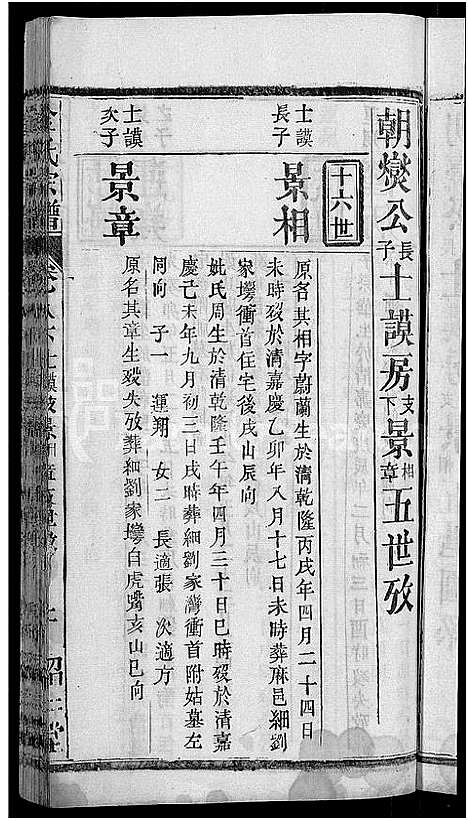 朝爕公長子士謨房支下景相章五世攷
十六世
士謨長子
景相
原名其相字蔚蘭生於清乾隆丙戌年四月二十四日
未時殁於清嘉慶乙卯年八月十七日未時葬麻邑細劉
家塆衝首住宅後戌山辰向
妣氏周生於清乾隆壬午年四月三十日巳時殁於清嘉
慶己未年九月初三日戌時葬細劉家灣衝首附姑墓左
同向 子一 運翔 女二 長適張 次適方
士謨次子
景章
原名其章生殁失攷葬細劉家塆白虎嘴亥山巳向
氏宗譜